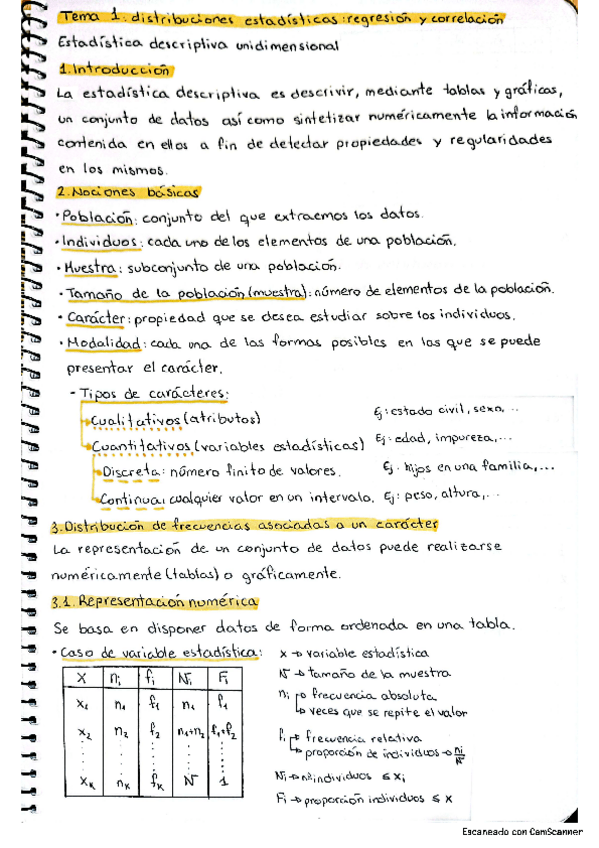 Tema 1. distribuciones estadísticas: regresión y correlación
Estadística descriptiva unidimensional
1. Introducción
La estadística descriptiva es descrivir, mediante tablas y gráficas,
un conjunto de datos así como sintetizar numéricamente la información
contenida en ellos a fin de detectar propiedades y regularidades
en los mismos.
2. Nociones básicas
· Población: conjunto del que extraemos los datos.
· Individuos: cada uno de los elementos de una población.
· Muestra: subconjunto de una población.
· Tamaño de la población (muestra): número de elementos de la población.
· Carácter: propiedad que se desea estudiar sobre los individuos.
· Modalidad: cada una de las formas posibles en las que se puede
presentar el carácter.
- Tipos de carácteres:
Cualitativos (atributos) Ej: estado civil, sexo, ...
Cuantitativos (variables estadísticas) Ej: edad, impureza, ...
Discreta: número finito de valores. Ej: hijos en una familia, ...
Continua: cualquier valor en un intervalo. Ej: peso, altura, ...
3. Distribución de frecuencias asociadas a un carácter
La representación de un conjunto de datos puede realizarse
numéricamente (tablas) o gráficamente.
3.1. Representación numérica
Se basa en disponer datos de forma ordenada en una tabla.
· Caso de variable estadística:
X ni fi Ni Fi
x1 n1 f1 n1 f1
x2 n2 f2 n1+n2 f1+f2
xk nk fk N 1
x → variable estadística
N → tamaño de la muestra
ni → frecuencia absoluta
→ veces que se repite el valor
fi → frecuencia relativa
→ proporción de individuos → ni/N
Ni → nº individuos ≤ xi
Fi → proporción individuos ≤ x
Escaneado con CamScanner